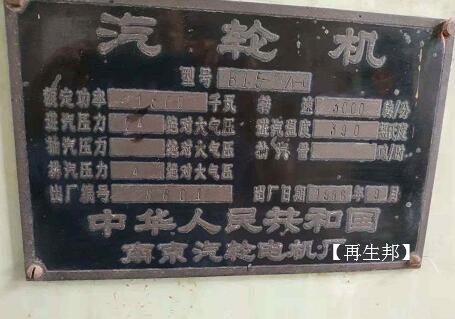 汽轮机
型号
额定功率 千瓦 转速 3000 转/分
进汽压力 绝对大气压 进汽温度 390 摄氏度
抽汽压力 绝对大气压 抽汽量 吨/时
排汽压力 绝对大气压
出厂编号 出厂日期 年 月
中华人民共和国
南京汽轮电机厂
【再生邦】